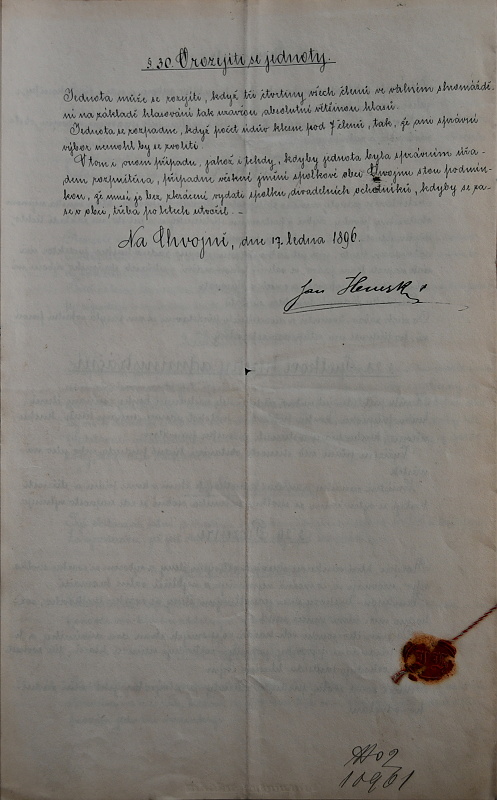 § 30. O rozejití se jednoty.
Jednota může se rozejíti, když tři čtvrtiny všech členů ve valném shromáždě-
ní na základě hlasování tak uzavrou, absolutní většinou hlasů.
Jednota se rozpadne, když počet údův klesne pod 7 členů, tak, že ani správní
výbor nemohl by se zvoliti.
V tom i onom případu, jakož i tehdy, kdyby jednota byla správním úřa-
dem rozpuštěna, připadne veškeré jmění spolkové obci Chvojnu s tou podmín-
kou, že musí je bez zkrácení vydati spolku divadelních ochotníků, kdyby se za-
se v obci, třeba po letech utvořil. -
Na Chvojně, dne 17. ledna 1896.
Jan
10961